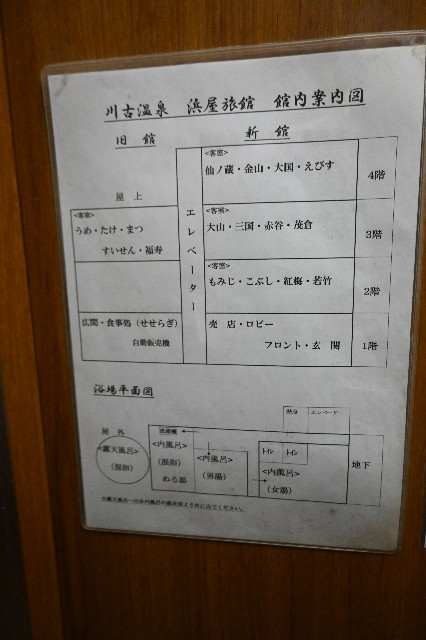 川古温泉 浜屋旅館 館内案内図
旧館 新館
<客室>
仙ノ蔵・金山・大国・えびす
4階
屋上
<客室>
うめ・たけ・まつ
すいせん・福寿
エレベーター
<客室>
大山・三国・赤谷・茂倉
3階
<客室>
もみじ・こぶし・紅梅・若竹
2階
広間・食事処(せせらぎ)
自動販売機
売店・ロビー
フロント・玄関
1階
浴場平面図
エレベーター
屋外
<露天風呂>
(混浴)
<内風呂>
(混浴)
ぬる湯
<内風呂>
(男湯)
トイレ
トイレ
<内風呂>
(女湯)
地下